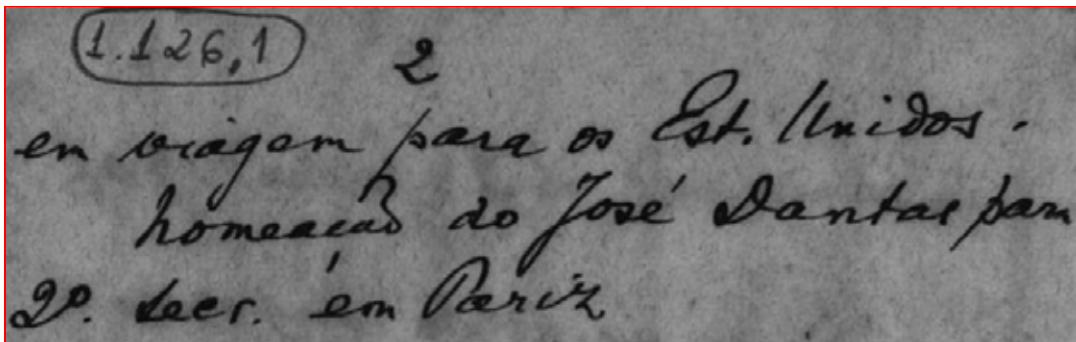 1.126,1
2
em viagem para os Est. Unidos.
nomeação do José Dantas para
2º. secr. em Pariz